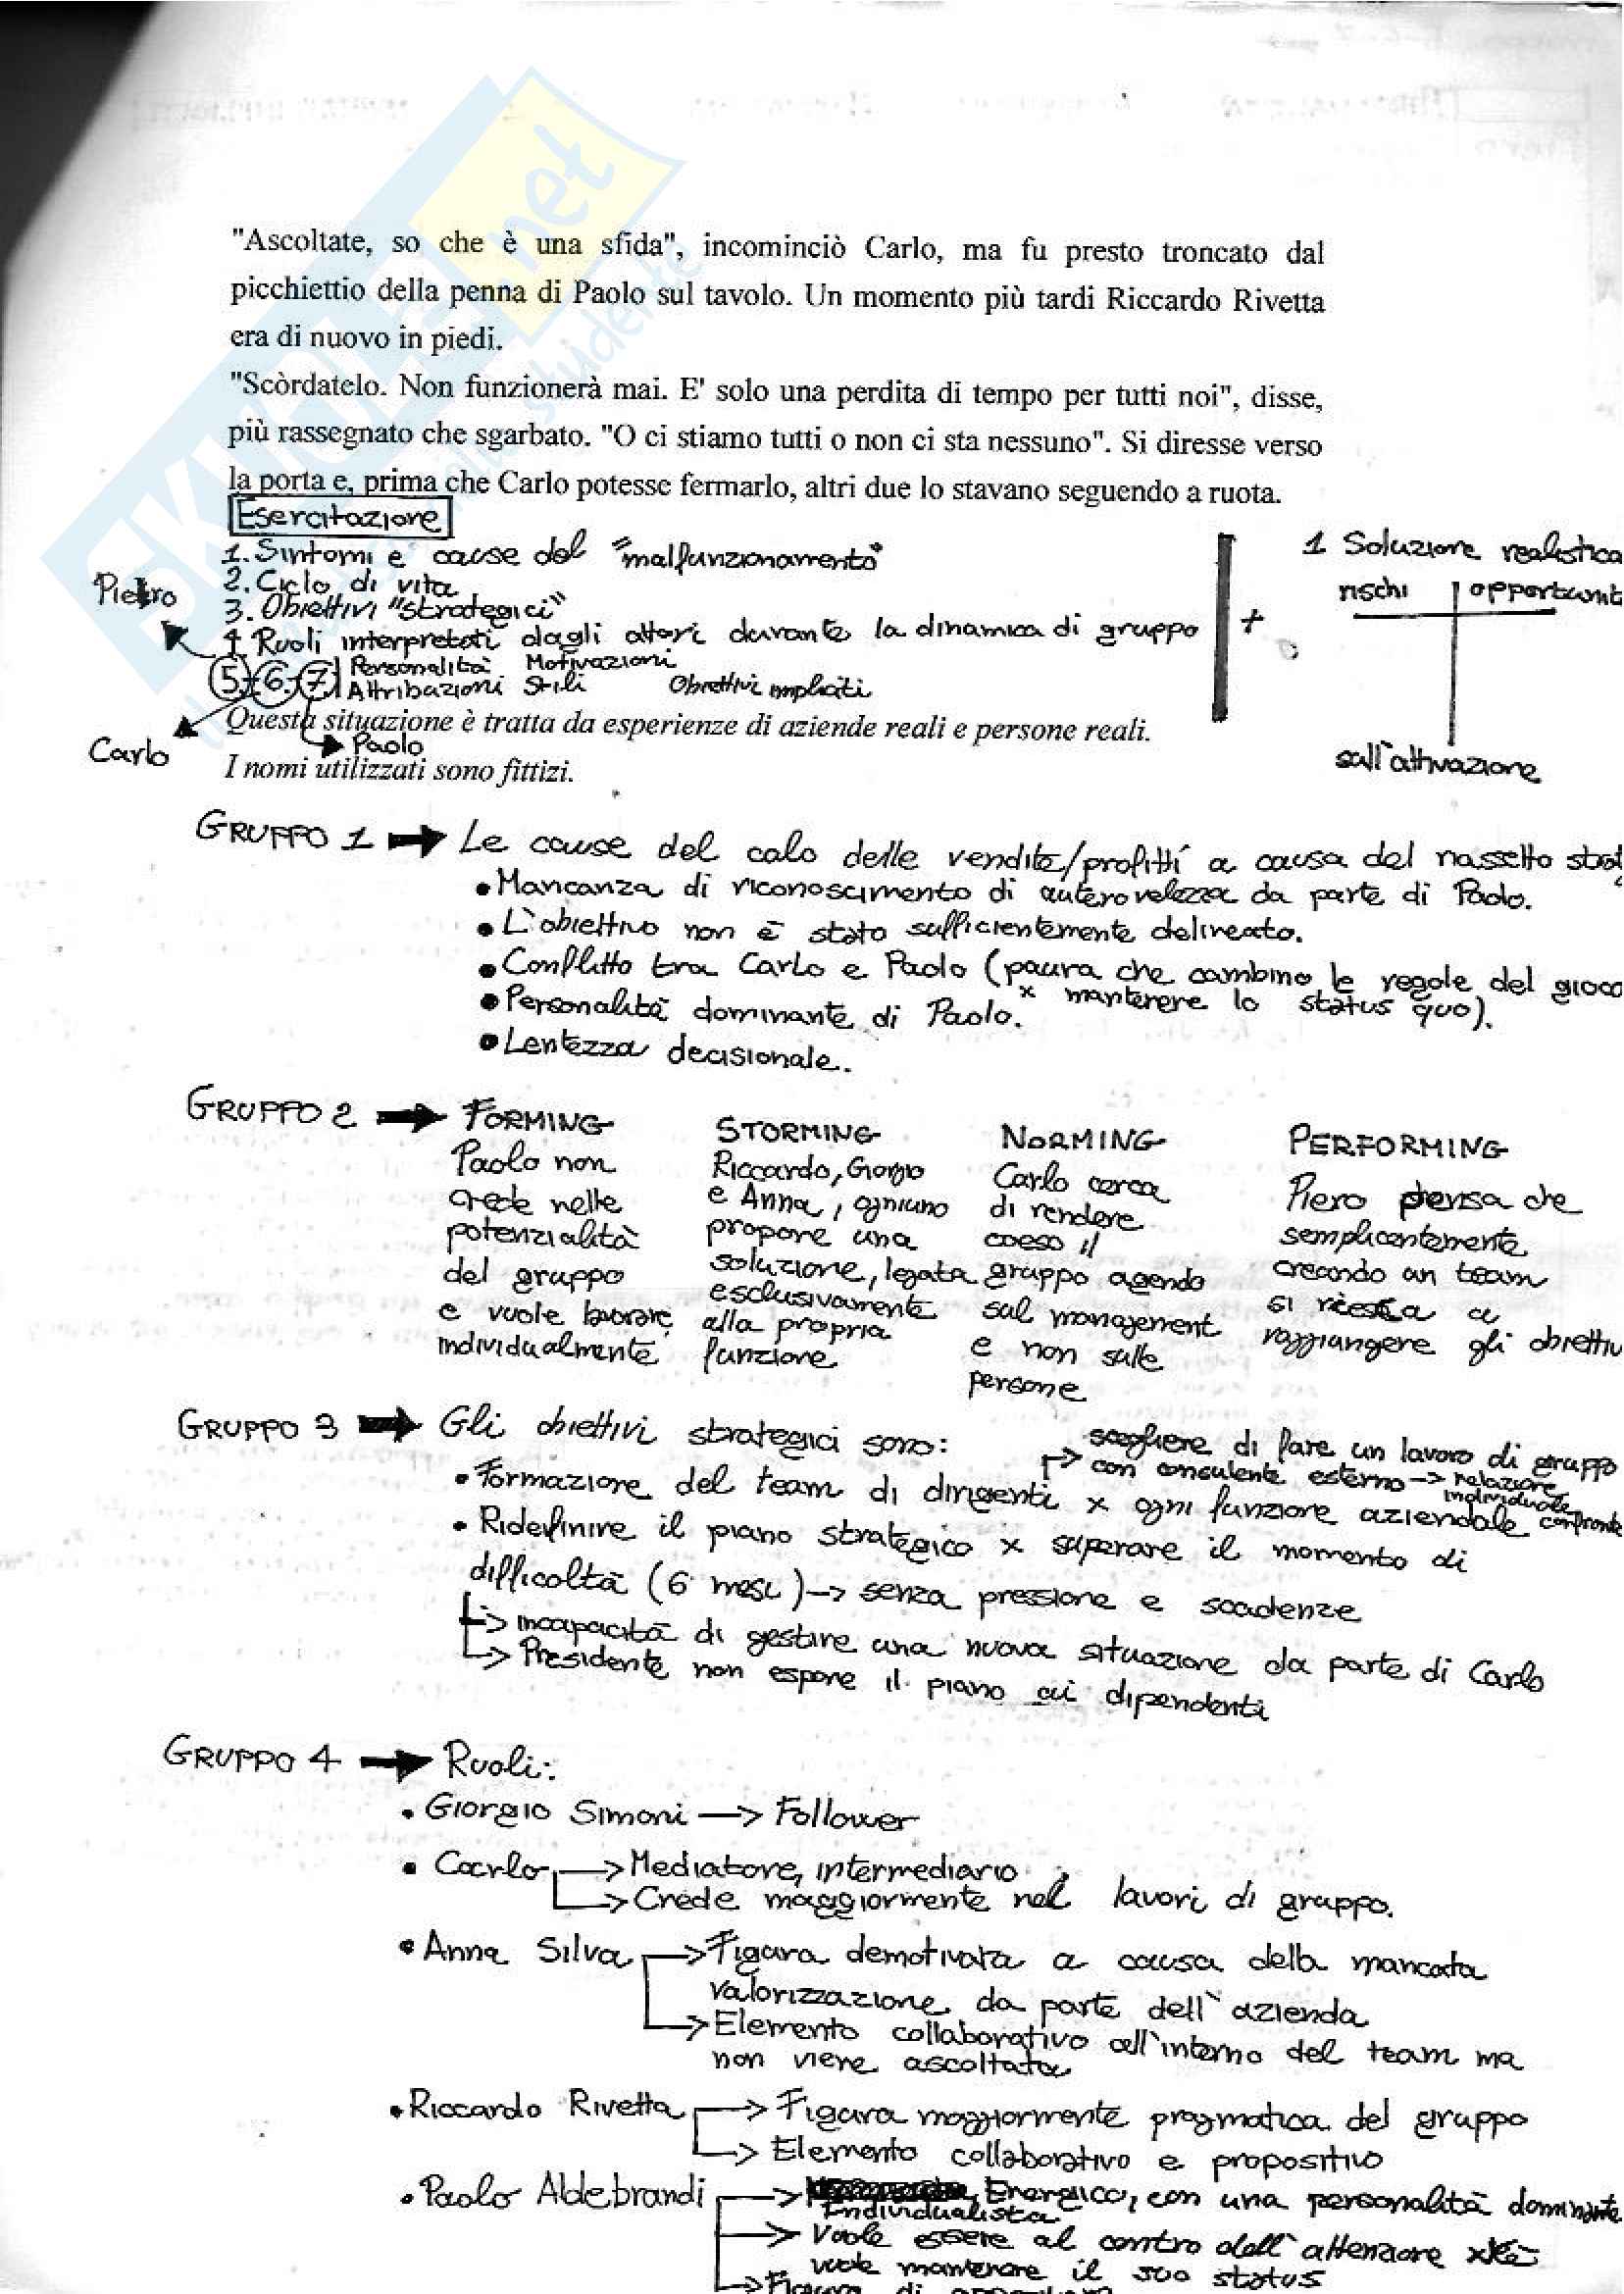 "Ascoltate, so che è una sfida", incominciò Carlo, ma fu presto troncato dal
picchiettio della penna di Paolo sul tavolo. Un momento più tardi Riccardo Rivetta
era di nuovo in piedi.
"Scòrdatelo. Non funzionerà mai. E' solo una perdita di tempo per tutti noi", disse,
più rassegnato che sgarbato. "O ci stiamo tutti o non ci sta nessuno". Si diresse verso
la porta e, prima che Carlo potesse fermarlo, altri due lo stavano seguendo a ruota.
Esercitazione
1. Sintomi e cause del "malfunzionamento"
2. Ciclo di vita
3. Obiettivi "strategici"
4 Ruoli interpretati dagli attori durante la dinamica di gruppo
5. 6. 7. Personalità Motivazioni
Attribuzioni Stili Obiettivi impliciti
Pietro
Carlo
Paolo
+
1 Soluzione realistica
rischi opportunit
sull'attivazione
Questa situazione è tratta da esperienze di aziende reali e persone reali.
I nomi utilizzati sono fittizi.
GRUPPO 1 → Le cause del calo delle vendite/profitti a causa del riassetto strat
• Mancanza di riconoscimento di auterovelezza da parte di Paolo.
• L'obiettivo non è stato sufficientemente delineato.
• Conflitto tra Carlo e Paolo (paura che cambino le regole del gioco
x mantenere lo status quo).
• Personalità dominante di Paolo.
• Lentezza decisionale.
GRUPPO 2 → FORMING
Paolo non
crede nelle
potenzialità
del gruppo
e vuole lavorare
individualmente
STORMING
Riccardo, Giorgio
e Anna, ogniuno
propone una
soluzione, legata
esclusivamente
alla propria
funzione
NORMING
Carlo cerca
di rendere
coeso il
gruppo agendo
sul management
e non sulle
persone
PERFORMING
Piero pensa che
semplicentemente
creando un team
si riesca a
raggiungere gli obiettivi
GRUPPO 3 → Gli obiettivi strategici sono:
→ scegliere di fare un lavoro di gruppo
con consulente esterno → relazione
individuale
confronto
• Formazione del team di dirigenti x ogni funzione aziendale
• Ridefinire il piano strategico x superare il momento di
difficoltà (6 mesi) → senza pressione e scadenze
→ incapacità di gestire una nuova situazione da parte di Carlo
→ Presidente non espone il piano ai dipendenti
GRUPPO 4 → Ruoli:
• Giorgio Simoni → Follower
• Carlo → Mediatore, intermediario
→ Crede maggiormente nei lavori di gruppo.
• Anna Silva → Figura demotivata a causa della mancata
valorizzazione da parte dell'azienda
→ Elemento collaborativo all'interno del team ma
non viene ascoltata
• Riccardo Rivetta → Figura maggiormente pragmatica del gruppo
→ Elemento collaborativo e propositivo
• Paolo Aldebrandi → Energico, con una personalità dominante
Individualista
→ Vuole essere al centro dell'attenzione xkè
vuole mantenere il suo status
→ Figura di
SKUOLA.net